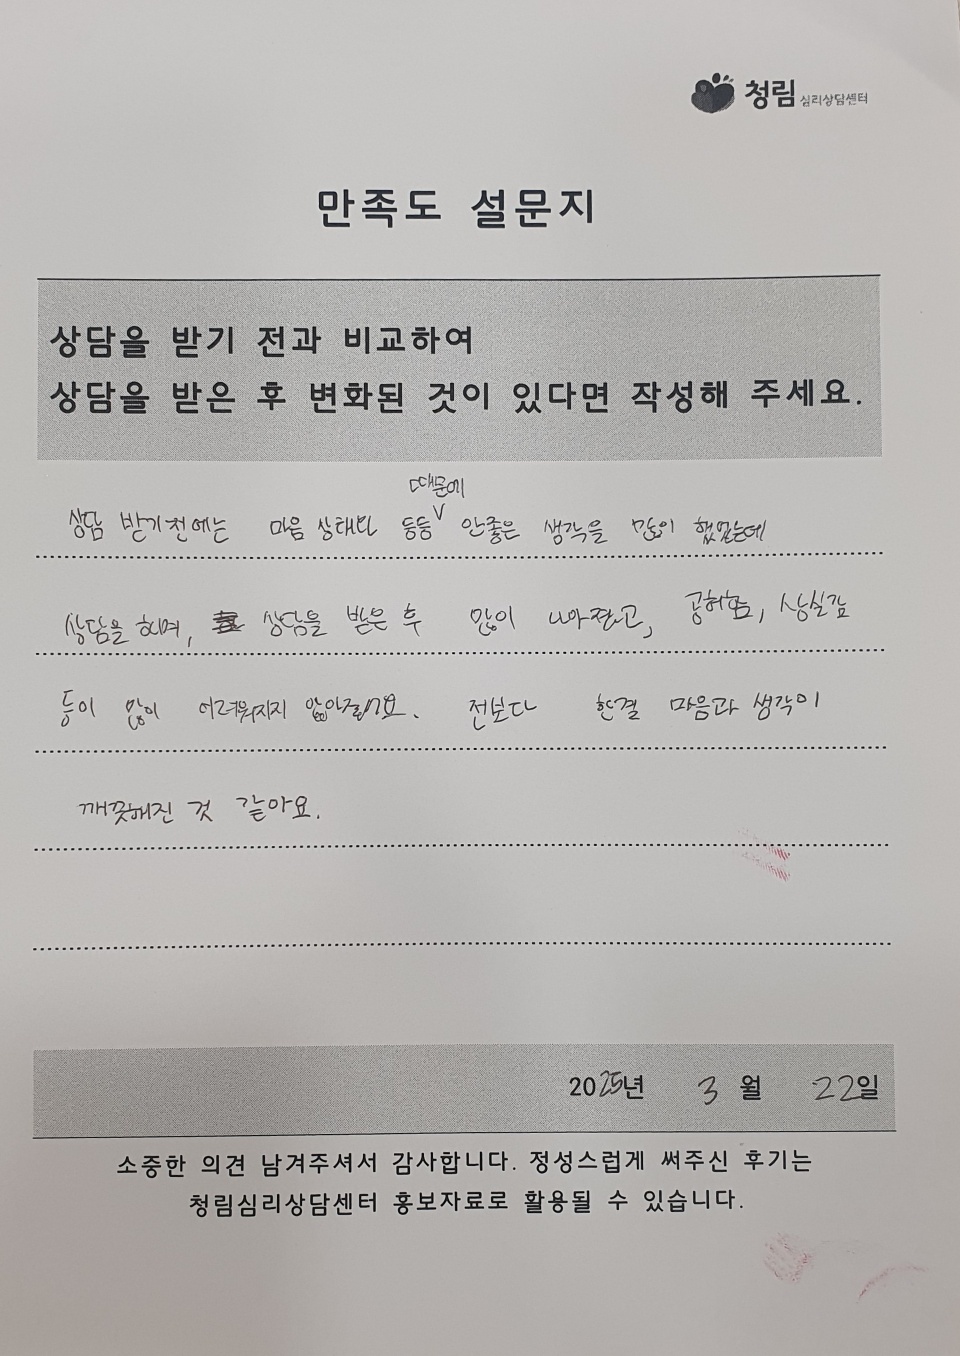 청림 심리상담센터
만족도 설문지
상담을 받기 전과 비교하여
상담을 받은 후 변화된 것이 있다면 작성해 주세요.
때문에
상담 받기전에는 마음 상태나 등등 ∨ 안좋은 생각을 많이 했었는데
상담을 하며, 상담을 받은 후 많이 나아졌고, 공허함, 상실감
등이 많이 어려워지지 않아졌어요. 전보다 한결 마음과 생각이
깨끗해진 것 같아요.
2025년 3월 22일
소중한 의견 남겨주셔서 감사합니다. 정성스럽게 써주신 후기는
청림심리상담센터 홍보자료로 활용될 수 있습니다.